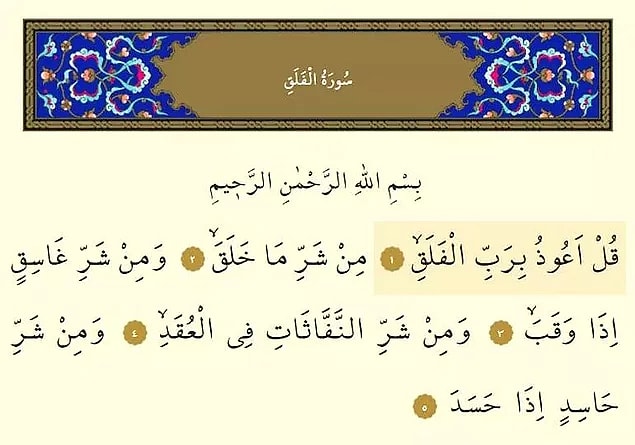 سُورَةُ الْفَلَقِ
بِسْمِ اللّٰهِ الرَّحْمٰنِ الرَّح۪يمِ
قُلْ اَعُوذُ بِرَبِّ الْفَلَقِۙ ١ مِنْ شَرِّ مَا خَلَقَۙ ٢ وَمِنْ شَرِّ غَاسِقٍ
اِذَا وَقَبَۙ ٣ وَمِنْ شَرِّ النَّفَّاثَاتِ فِى الْعُقَدِۙ ٤ وَمِنْ شَرِّ
حَاسِدٍ اِذَا حَسَدَ ٥